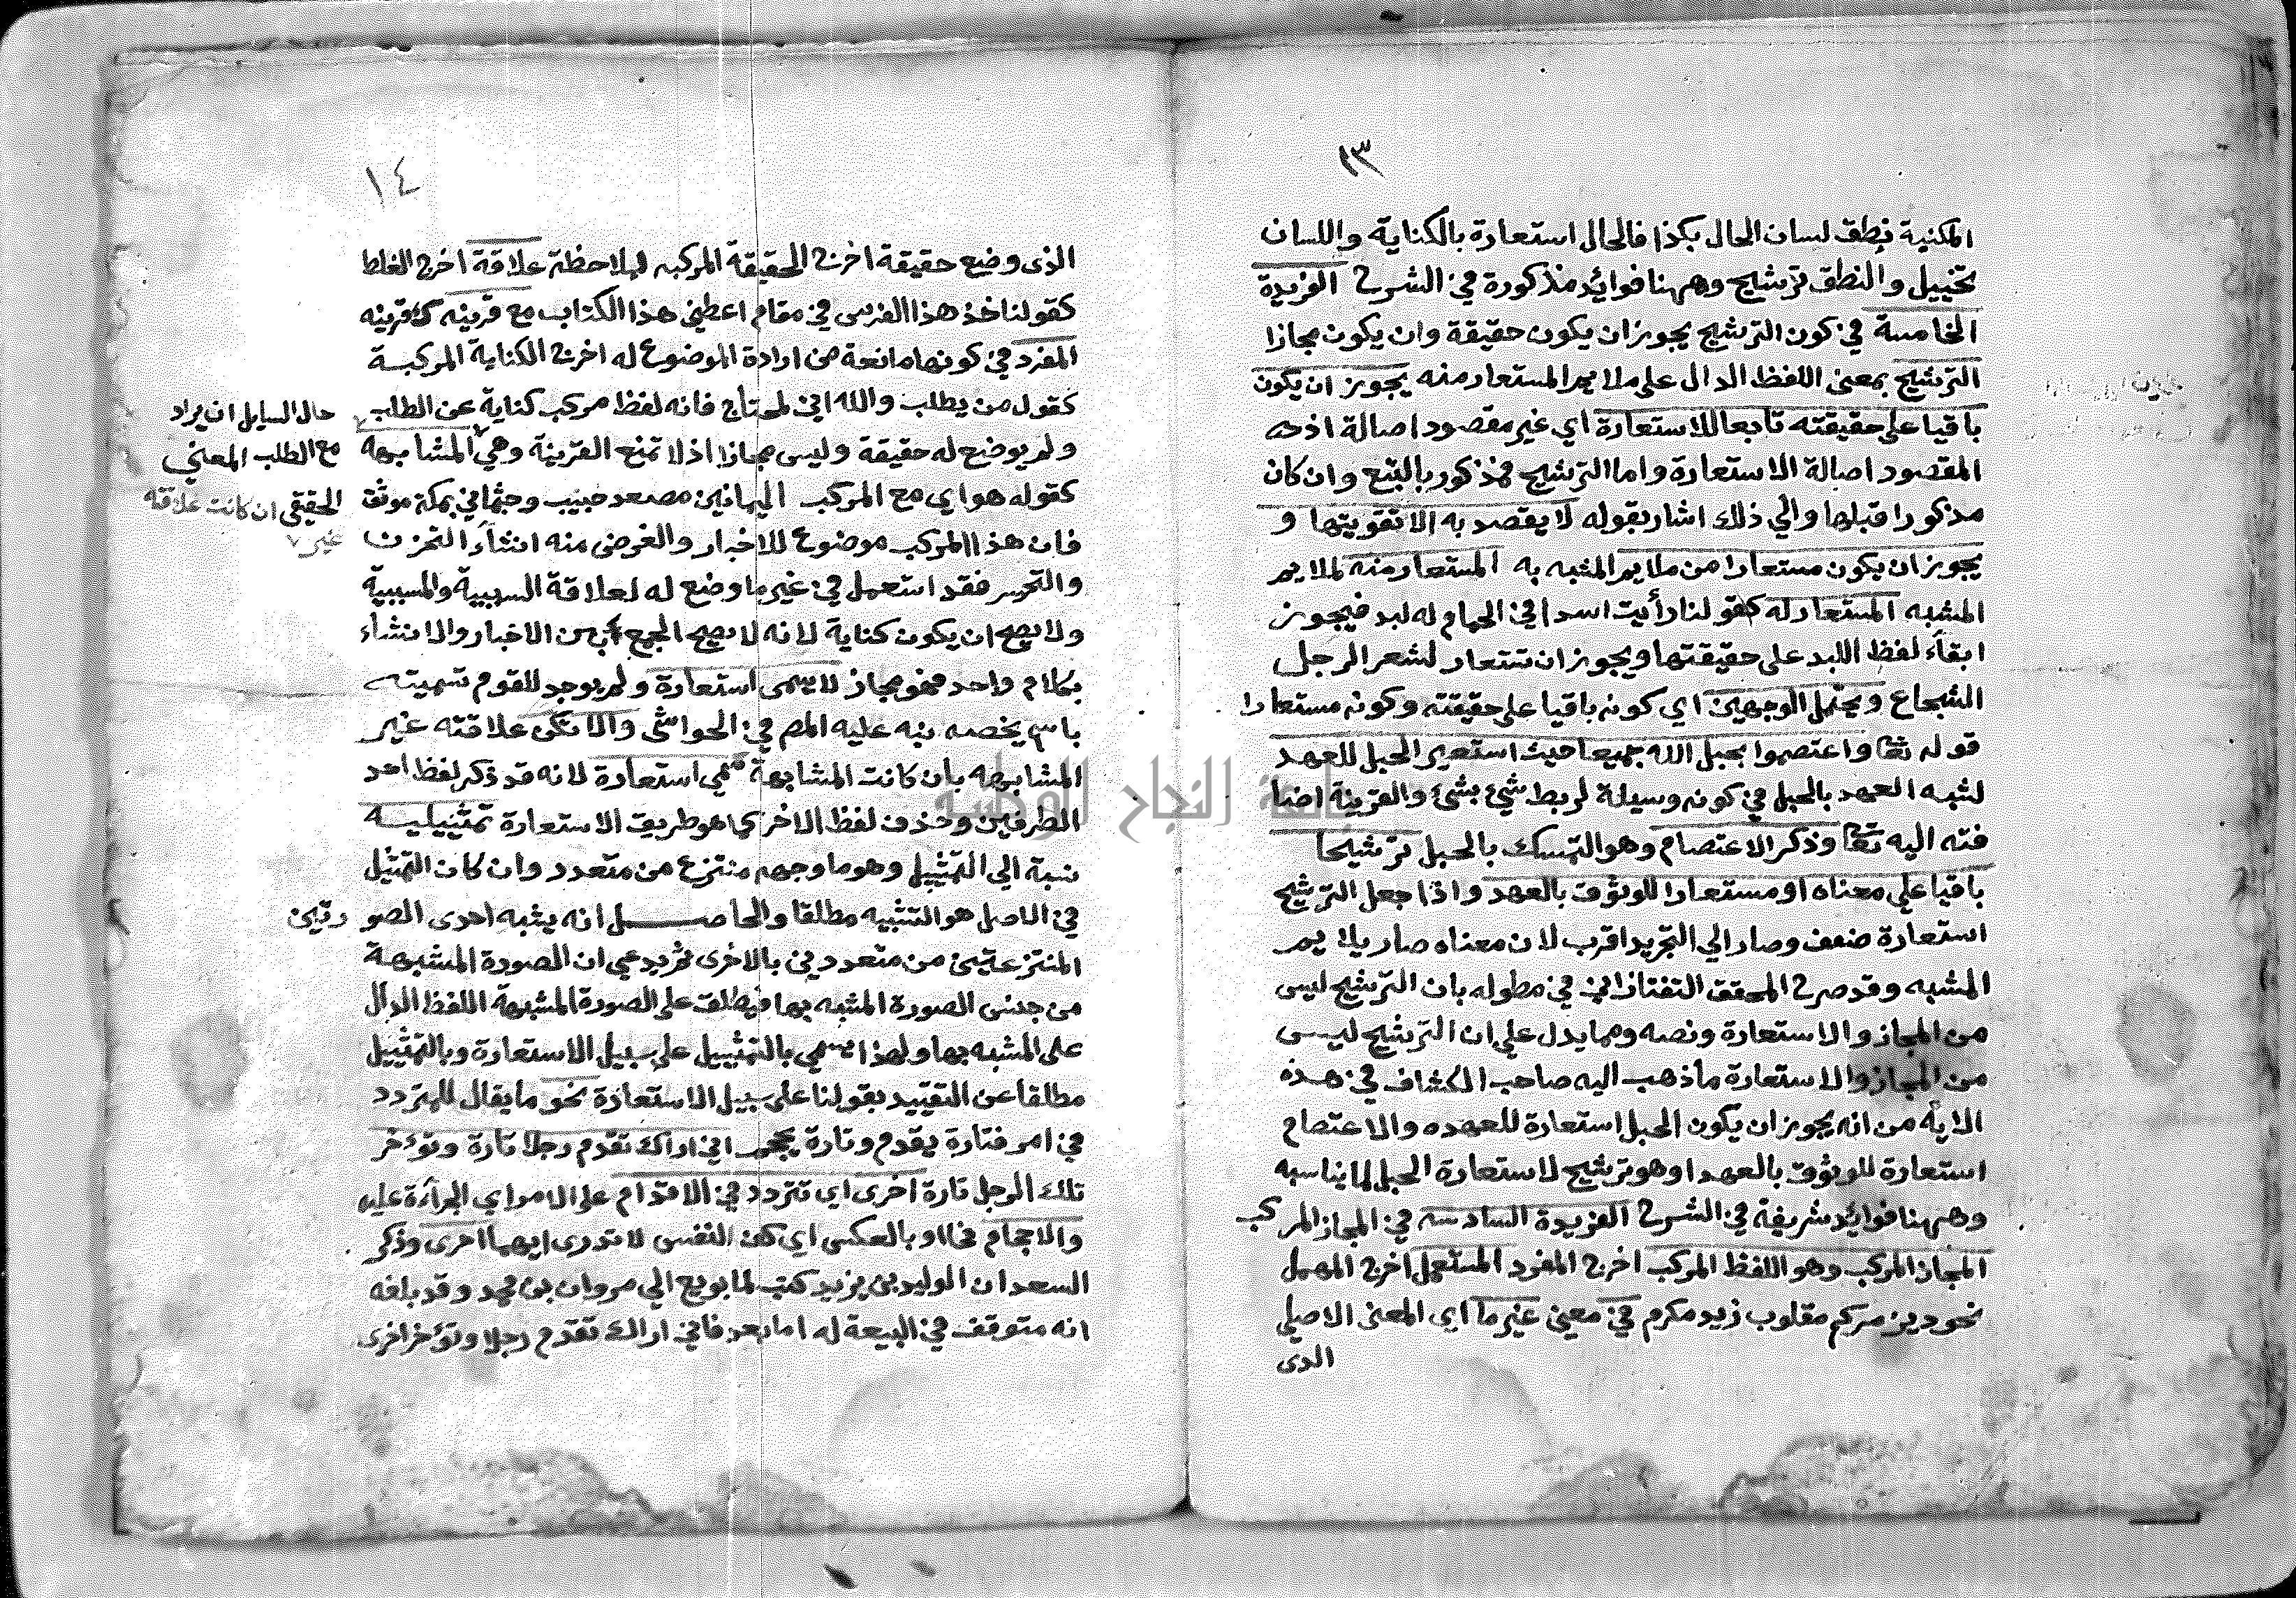 ١٣
المكنية نطق لسان الحال بكذا فالحال استعارة بالكناية واللسان
تخييل والنطق ترشيح وههنا فوائد مذكورة في الشرح الفريدة
الخامسة في كون الترشيح يجوز ان يكون حقيقة وان يكون مجازا
الترشيح بمعنى اللفظ الدال على ملايم المستعار منه يجوز ان يكون
باقيا على حقيقته تابعا للاستعارة اي غير مقصود اصالة اذ
المقصود اصالة الاستعارة واما الترشيح فمذكور بالتبع وان كان
مذكورا قبلها والي ذلك اشار بقوله لا يقصد به الا تقويتها و
يجوز ان يكون مستعارا من ملايم المشبه به المستعار منه لملايم
المشبه المستعار له كقولنا رأيت اسدا في الحمام له لبد فيجوز
ابقاء لفظ اللبد على حقيقتها ويجوز ان تستعار لشعر الرجل
الشجاع ويحتمل الوجهين اي كونه باقيا على حقيقته وكونه مستعارا
قوله تعا واعتصموا بحبل الله جميعا حيث استعير الحبل للعهد
لشبه العهد بالحبل في كونه وسيلة لربط شيء بشئ والقرينة اضا
فته اليه تعا وذكر الاعتصام وهو التمسك بالحبل ترشيحا
باقيا على معناه او مستعارا للوثوق بالعهد واذا جعل الترشيح
استعارة ضعف وصار الي التجريد اقرب لان معناه صار يلايم
المشبه وقد صرح المحقق التفتازاني في مطوله بان الترشيح ليس
من المجاز والاستعارة ونصه ومما يدل علي ان الترشيح ليس
من المجاز والاستعارة ما ذهب اليه صاحب الكشاف في هذه
الاية من انه يجوز ان يكون الحبل استعارة للعهده والاعتصام
استعارة للوثوق بالعهد او هو ترشيح لاستعارة الحبل لما يناسبه
وههنا فوائد شريفة في الشرح الفريدة السادسه في المجاز المركب
المجاز المركب وهو اللفظ المركب اخرج المفرد المستعمل اخرج المهمل
نحو ديز مركم مقلوب زيد مكرم في معنى غير ما اي المعنى الاصلي
الذي
١٤
الذي وضع حقيقة اخرج الحقيقة المركبه لملاحظة علاقة اخرج الغلط
كقولنا خذ هذا الفرس في مقام اعطني هذا الكتاب مع قرينه كقرينه
المفرد في كونها مانعة من ارادة الموضوع له اخرج الكناية المركبة
كقول من يطلب والله اني لمحتاج فانه لفظ مركب كناية عن الطلب
حال السايل ان يراد
ولم يوضع له حقيقة وليس مجازا اذ لا تمنع القرينة وهي المشابهه
مع الطلب المعني
كقوله هواي مع المركب اليمانين مصعد جنيب وجثماني بمكة موثق
الحقيقي ان كانت علاقه
غير
فان هذا المركب موضوع للاخبار والغرض منه انشاء التحزن
والتحسر فقد استعمل في غير ما وضع له لعلاقة السببية والمسببية
ولا يصح ان يكون كناية لانه لا يصح الجمع بين الاخبار والانشاء
بكلام واحد فهو مجاز لا يسمى استعارة ولم يوجد للقوم تسميته
باسم يخصه نبه عليه المص في الحواشي والا تكن علاقته غير
المشابهه بان كانت المشابهة سمي استعارة لانه قد ذكر لفظ احد
الطرفين وحذف لفظ الاخر كما هو طريق الاستعارة تمثيليه
نسبة الي التمثيل وهو ما وجهه منتزع من متعدد وان كان التمثيل
في الاصل هو التشبيه مطلقا والحاصل انه يشبه احدى الصو رتين
المنتزعتين من متعددين بالاخرى ثم يدعي ان الصورة المشبهة
من جنس الصورة المشبه بها فيطلق على الصورة المشبهة اللفظ الدال
على المشبه بها ولهذا سمي بالتمثيل على سبيل الاستعارة وبالتمثيل
مطلقا عن التقييد بقولنا على سبيل الاستعارة نحو ما يقال للمتردد
في امر فتارة يقدم وتارة يحجم اني اراك تقدم رجلا تارة وتؤخر
تلك الرجل تارة اخرى اي تتردد في الاقدام على الامر اي الجرأة عليه
والاحجام او بالعكس اي كف النفس لا تدرى ايهما احرى وذكر
السعد ان الوليد بن يزيد كتب لما بويع الي مروان بن محمد وقد بلغه
انه متوقف في البيعة له اما بعد فاني اراك تقدم رجلا وتؤخر اخرى
جامعة النجاح الوطنية